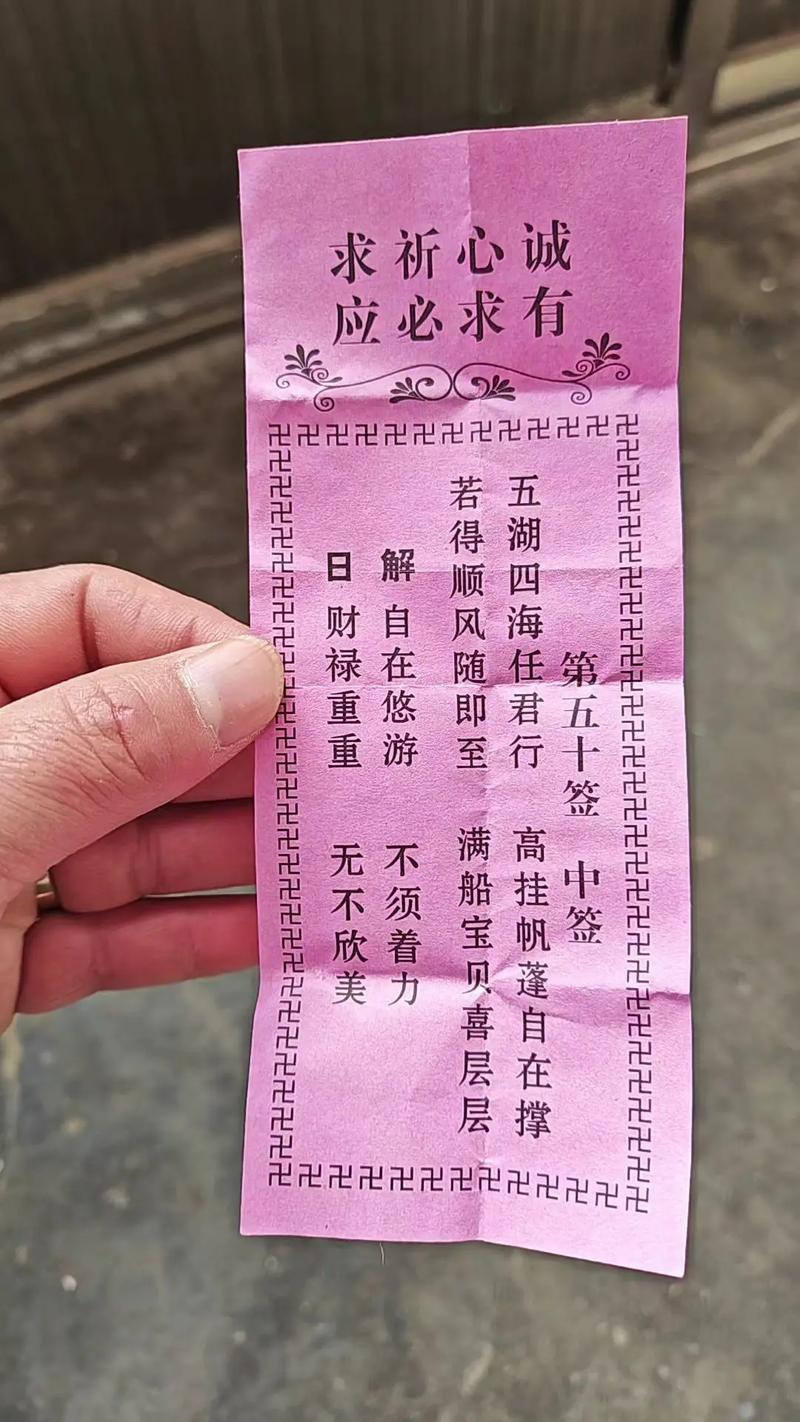 诚心祈求
有求必应
第五十签 中签
五湖四海任君行 高挂帆蓬自在撑
若得顺风随即至 满船宝贝喜层层
解 自在悠游 不须着力
日 财禄重重 无不欣美